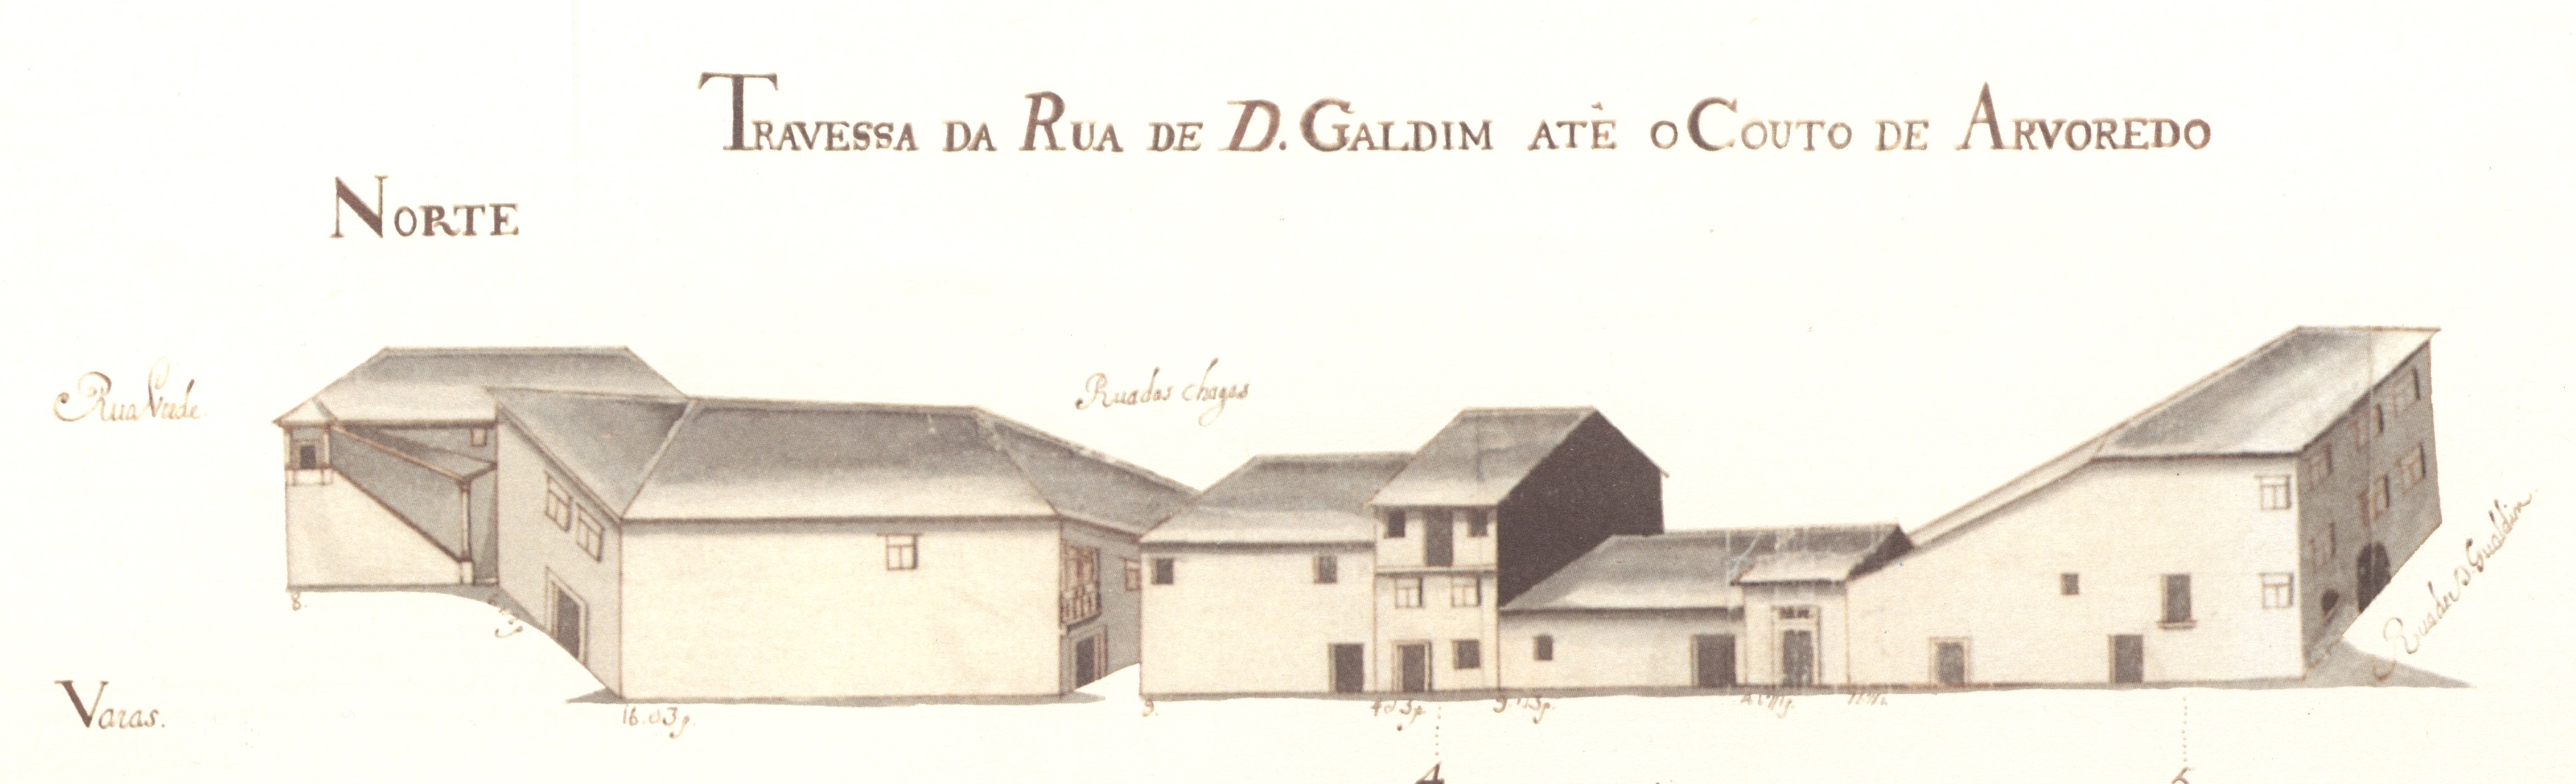 TRAVESSA DA RUA DE D. GALDIM ATÊ O COUTO DE ARVOREDO
NORTE
Rua Verde.
Rua das chagas
Rua de D. Gualdim
8.
Varas.
16. o 3 p.
9.
4 o 3 p.
9 o 3 p.
4
5